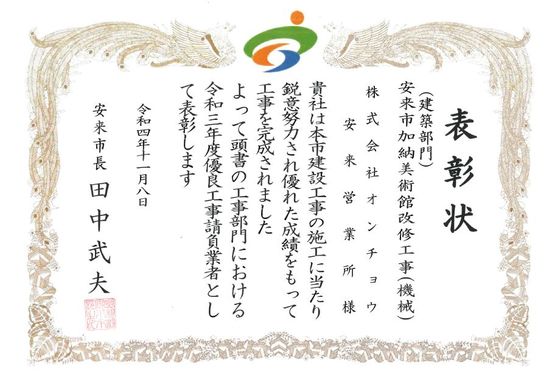 表彰状
(建築部門)
安来市加納美術館改修工事(機械)
株式会社オンチョウ
安来営業所様
貴社は本市建設工事の施工に当たり
鋭意努力され優れた成績をもって
工事を完成されました
よって頭書の工事部門における
令和三年度優良工事請負業者とし
て表彰します
令和四年十一月八日
安来市長 田中武夫